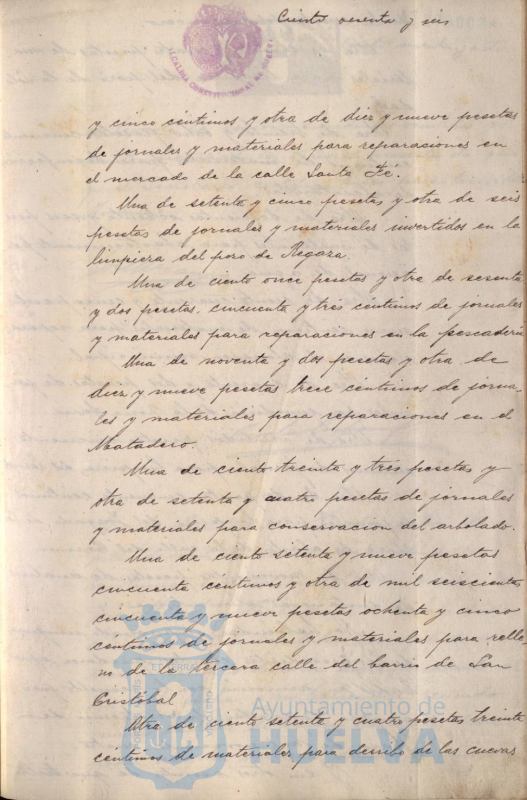 Ciento sesenta y seis
ALCALDIA CONSTITUCIONAL DE HUELVA
y cinco céntimos y otra de diez y nueve pesetas
de jornales y materiales para reparaciones en
el mercado de la calle Santa Fé.
Una de setenta y cinco pesetas y otra de seis
pesetas de jornales y materiales invertidos en la
limpieza del pozo de Regaza.
Una de ciento once pesetas y otra de sesenta
y dos pesetas cincuenta y tres céntimos de jornales
y materiales para reparaciones en la pescadería
Una de noventa y dos pesetas y otra de
diez y nueve pesetas trece céntimos de jorna-
les y materiales para reparaciones en el
Matadero.
Una de ciento treinta y tres pesetas y
otra de setenta y cuatro pesetas de jornales
y materiales para conservacion del arbolado.
Una de ciento setenta y nueve pesetas
cincuenta centimos y otra de mil seiscientas
cincuenta y nueve pesetas ochenta y cinco
céntimos de jornales y materiales para relle-
no de la tercera calle del barrio de San
Cristóbal
Otra de ciento setenta y cuatro pesetas treinta
céntimos de materiales para derribo de las cuevas
Ayuntamiento de
HUELVA